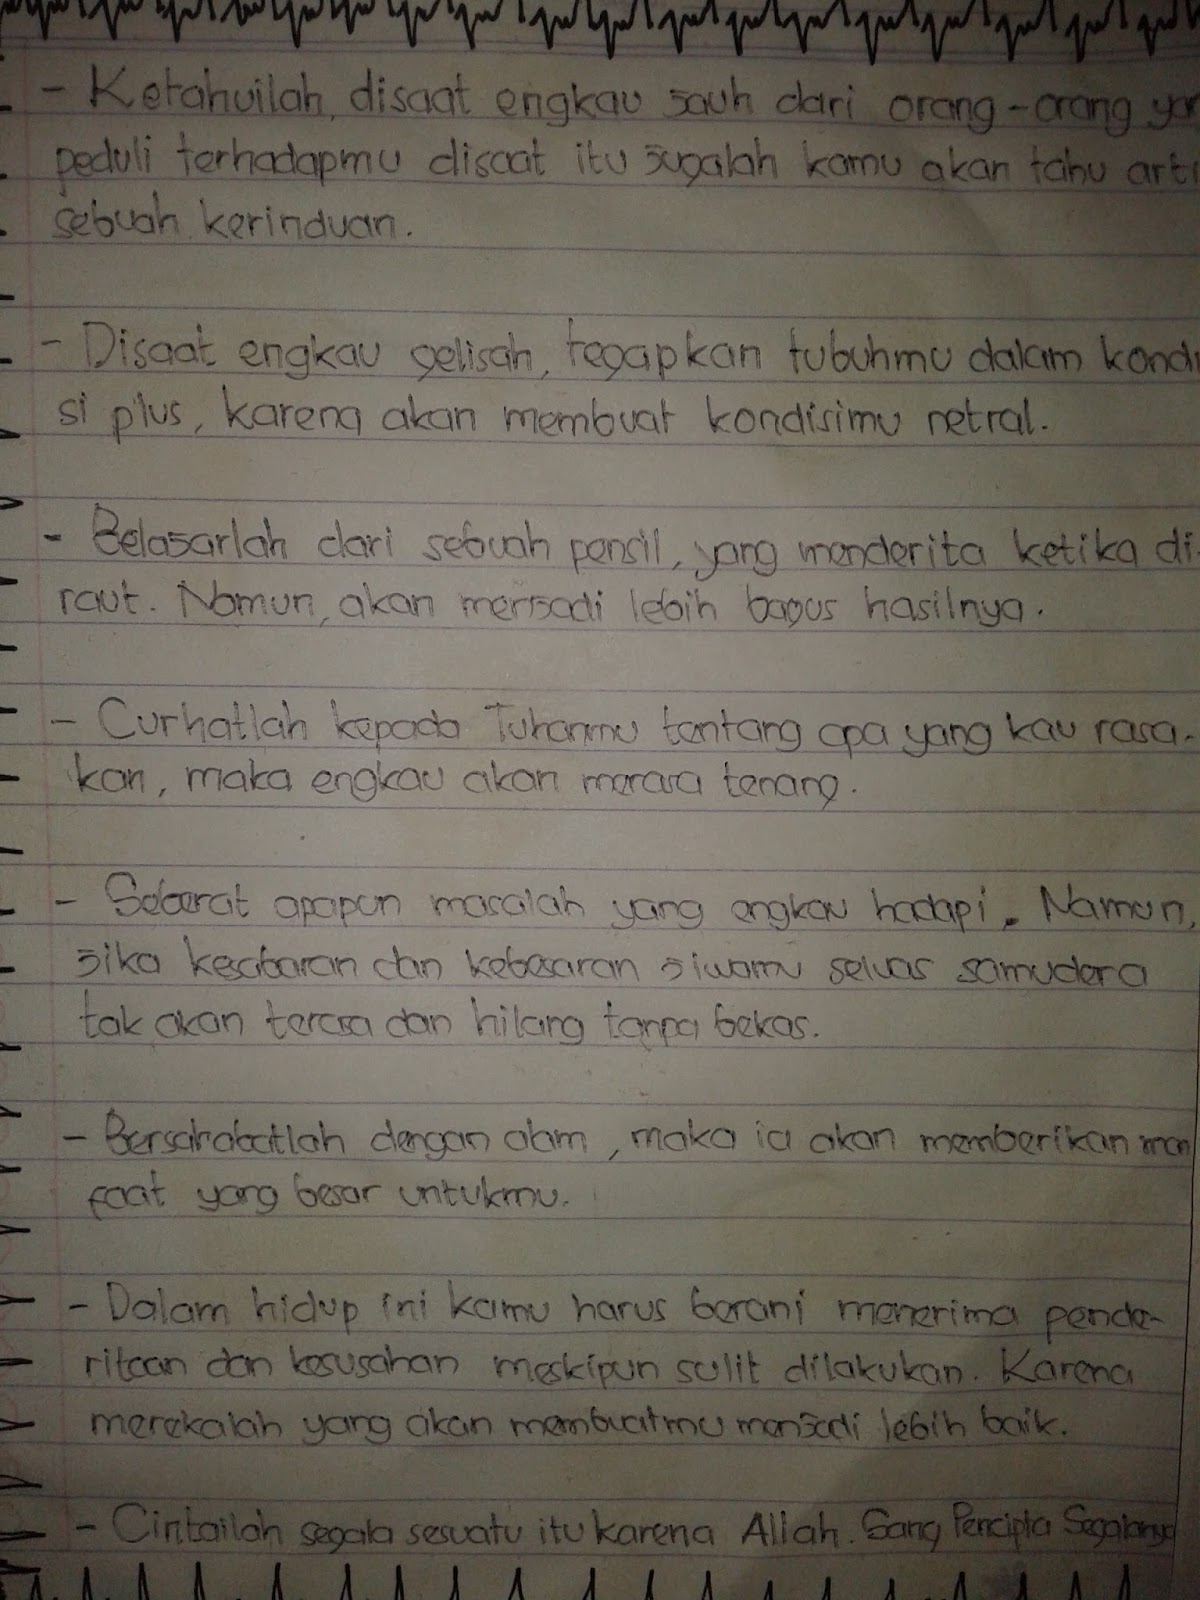 - Ketahuilah, disaat engkau jauh dari orang-orang yan
peduli terhadapmu disaat itu jugalah kamu akan tahu arti
sebuah kerinduan.
- Disaat engkau gelisah, tegapkan tubuhmu dalam kondi
si plus, karena akan membuat kondisimu netral.
- Belajarlah dari sebuah pensil, yang menderita ketika di-
raut. Namun, akan menjadi lebih bagus hasilnya.
- Curhatlah kepada Tuhanmu tentang apa yang kau rasa-
kan, maka engkau akan merasa tenang.
- Seberat apapun masalah yang engkau hadapi. Namun,
jika kesabaran dan kebesaran jiwamu seluas samudera
tak akan terasa dan hilang tanpa bekas.
- Bersahabatlah dengan alam, maka ia akan memberikan man
faat yang besar untukmu.
- Dalam hidup ini kamu harus berani menerima pende-
ritaan dan kesusahan meskipun sulit dilakukan. Karena
merekalah yang akan membuatmu menjadi lebih baik.
- Cintailah segala sesuatu itu karena Allah. Sang Pencipta Segalanya